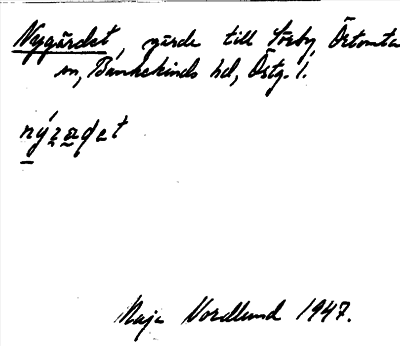 Nygärdet, gärde till Torby, Örtomta
sn, Bankekinds hd, Östg. l.
nýzadet
Maja Nordlund 1947.